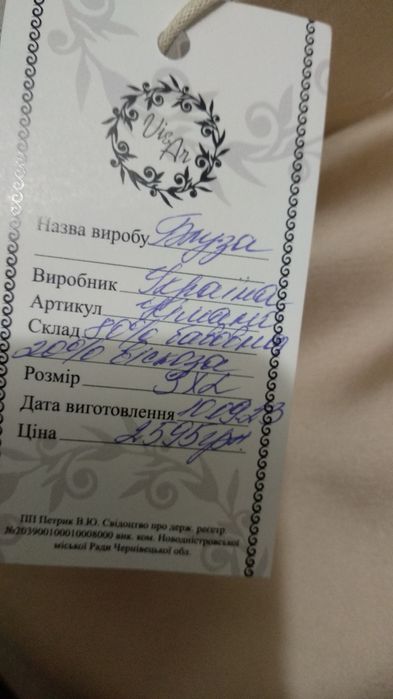 Vis&Ar
Назва виробу Блуза
Виробник Україна
Артикул
Склад 80% бавовна
20% віскоза
Розмір 3XL
Дата виготовлення 10.09.23
Ціна 2595грн.
ПП Петрик В.Ю. Свідоцтво про держ. реєстр.
№203900100010008000 вик. ком. Новодністровської
міської Ради Чернівецької обл.